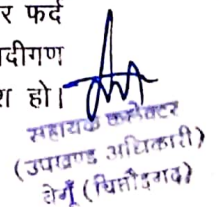 र फर्द
दीगण
श हो।
सहायक कलेक्टर
(उपखण्ड अधिकारी)
बेगूँ (चित्तौड़गढ़)